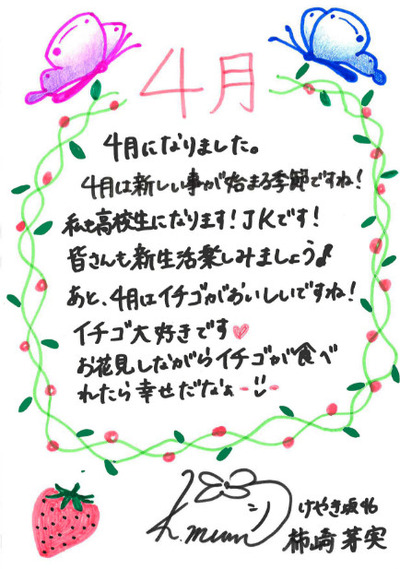 4月
4月になりました。
4月は新しい事が始まる季節ですね!
私も高校生になります!JKです!
皆さんも新生活楽しみましょう♪
あと、4月はイチゴがおいしいですね!
イチゴ大好きです♥
お花見しながらイチゴが食べ
れたら幸せだなぁ
けやき坂46
柿崎芽実